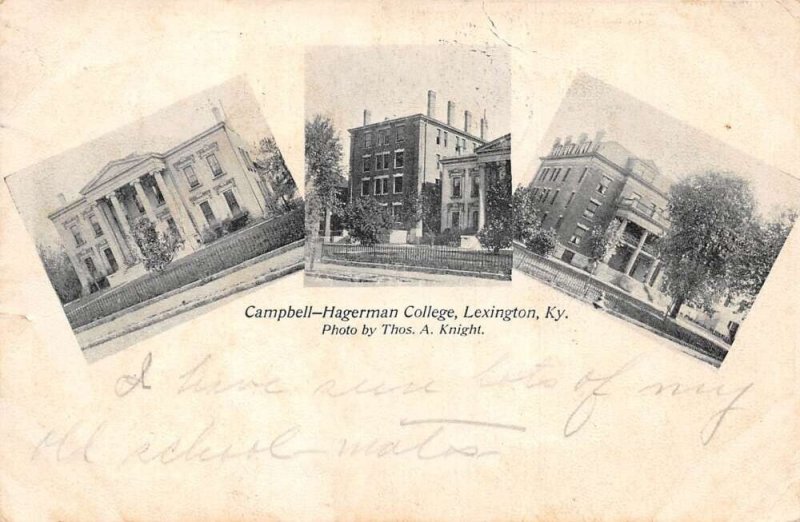 Campbell–Hagerman College, Lexington, Ky.
Photo by Thos. A. Knight.
I have seen lots of my
old school mates